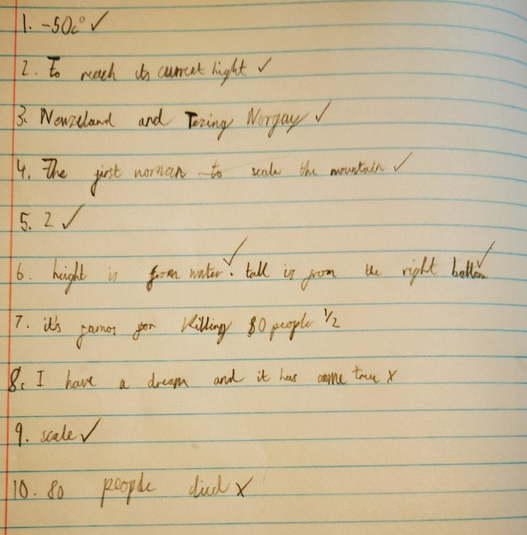 1. -50c° ✓
2. To reach its current hight ✓
3. Newzeland and Tezing Norgay ✓
4. The first woman to scale the mountain ✓
5. 2 ✓
6. height is from water ✓. tall is from the right bottom ✓
7. it's famos for killing 80 people 1/2
8. I have a dream and it has come true x
9. scale ✓
10. 80 people died x